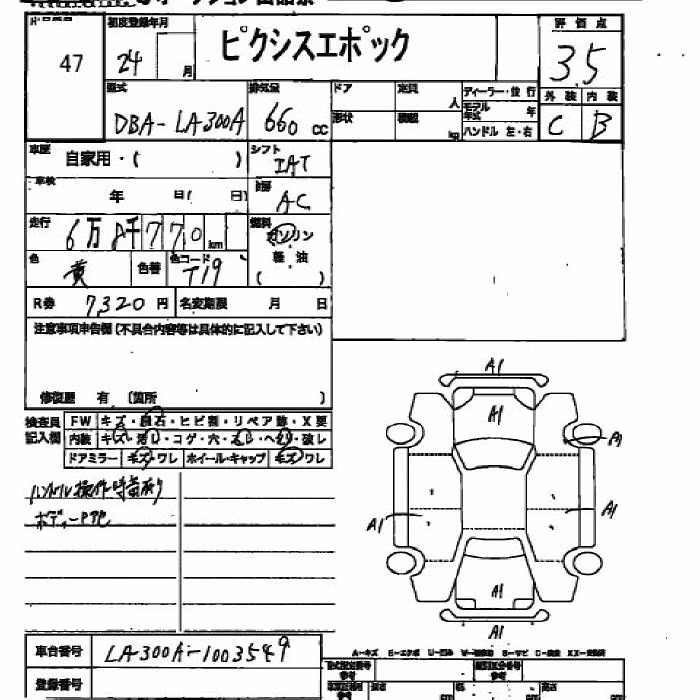 初度登録年月
評価点
47
24 月
ピクシスエポック
3.5
型式
排気量
ドア
定員
人
ディーラー・並行
モデル年式 年
外装 内装
DBA-LA300A
660 cc
形状
積載
kg
ハンドル 左・右
C B
車歴
自家用・( )
シフト
IAT
車検
年 日( 日)
冷房
AC
走行
6万8千770km
燃料
ガソリン
軽油
( )
色
黄
色替
色コード
T19
R券 7320円
名変期限 月 日
注意事項申告欄(不具合内容等は具体的に記入して下さい)
修復歴 有 〔箇所 〕
検査員記入欄
FW キズ・飛石・ヒビ割・リペア跡・X要
内装 キズ・汚れ・コゲ・穴・ ・ヘコミ・破レ
ドアミラー キズ・ワレ ホイール・キャップ キズ・ワレ
ハンドル操作時音有り
ボディー
A1
A1
A1
A1
A1
A1
A1
A-キズ
車台番号 LA300A-1003549
登録番号